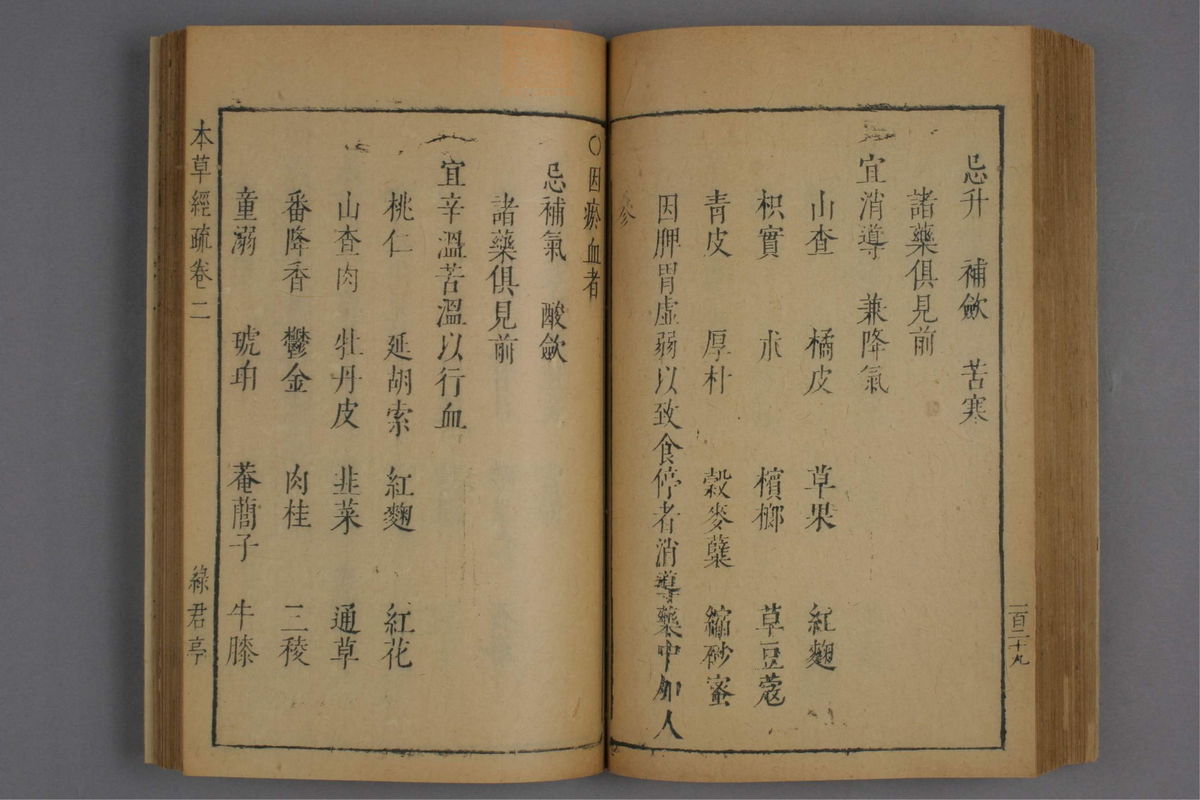 一百二十九
忌升　補斂　苦寒
諸藥俱見前
宜消導　兼降氣
山查　橘皮　草果　紅麴
枳實　朮　檳榔　草豆蔻
青皮　厚朴　穀麥蘖　縮砂蜜
因脾胃虛弱以致食停者消導藥中加人
參
○因瘀血者
忌補氣　酸斂
諸藥俱見前
宜辛溫苦溫以行血
桃仁　延胡索　紅麴　紅花
山查肉　牡丹皮　韭菜　通草
番降香　鬱金　肉桂　三稜
童溺　琥珀　菴䕡子　牛膝
本草經疏卷二　綠君亭